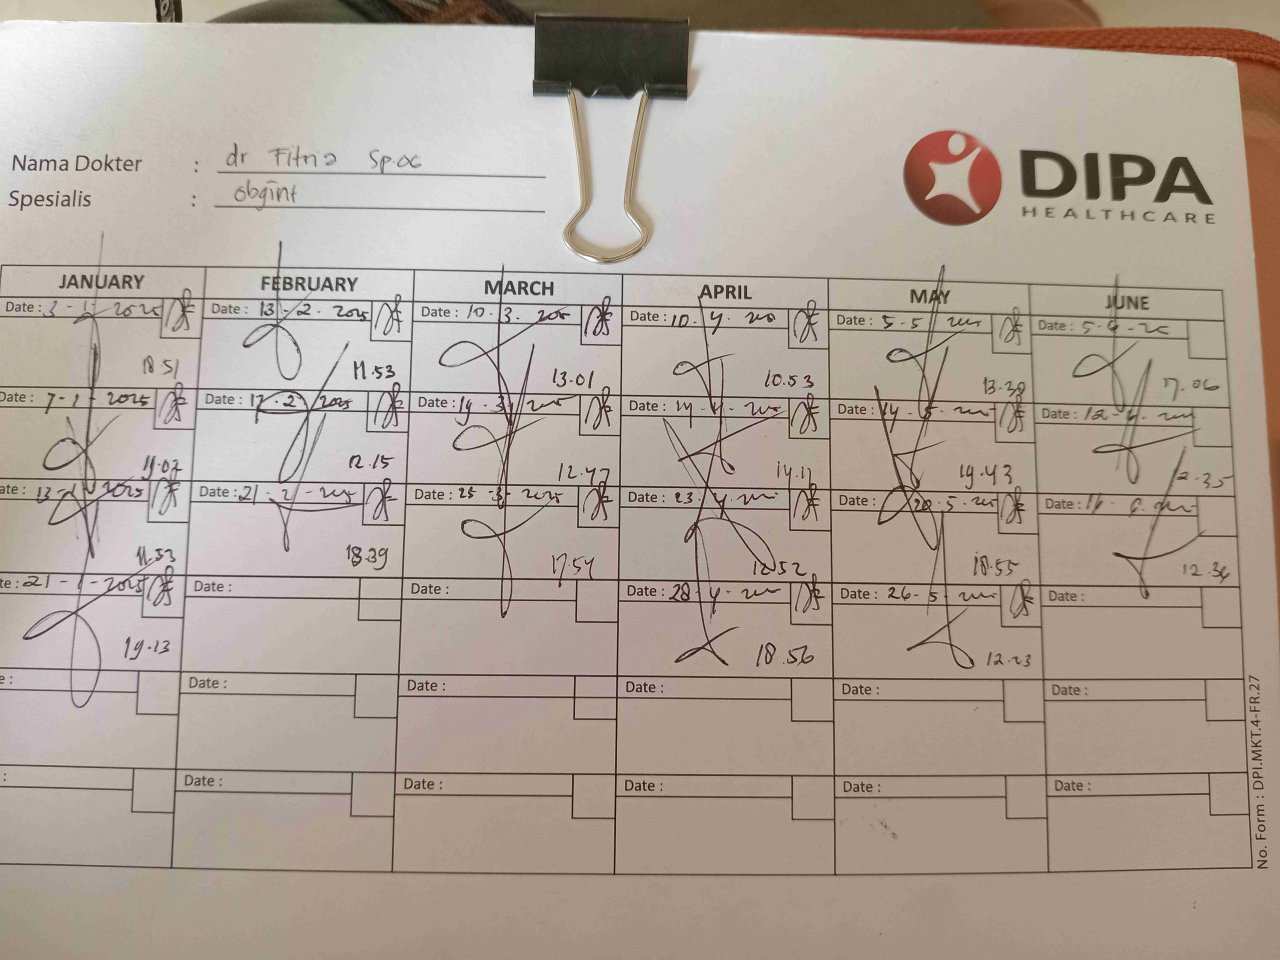 Nama Dokter : dr Fitria Sp.OG
Spesialis : obgint
DIPA
HEALTHCARE
JANUARY FEBRUARY MARCH APRIL MAY JUNE
Date : 3 - 1 - 2025 Date : 13 - 2 - 2025 Date : 10 - 3 - 2025 Date : 10 - 4 - 20 Date : 5 - 5 Date : 5 - 6 - 25
18.51 11.53 13.01 10.53 13.39 17.06
Date : 7 - 1 - 2025 Date : 17 - 2 - 2025 Date : 19 - 3 - 2025 Date : 14 - 4 - 2025 Date : 14 - 5 Date : 12 - 6
19.02 12.15 12.47 14.11 19.43 12.35
ate : 13 - 1 - 2025 Date : 21 - 2 - 2025 Date : 25 - 3 - 2025 Date : 23 - 4 Date : 20 - 5 Date : 16 - 6
11.53 18.39 17.54 12.52 18.55 12.34
te : 21 - 1 - 2025 Date : Date : Date : 28 - 4 Date : 26 - 5 Date :
19.13 18.56 12.23
e : Date : Date : Date : Date : Date :
: Date : Date : Date : Date : Date :
No. Form : DPI.MKT.4-FR.27